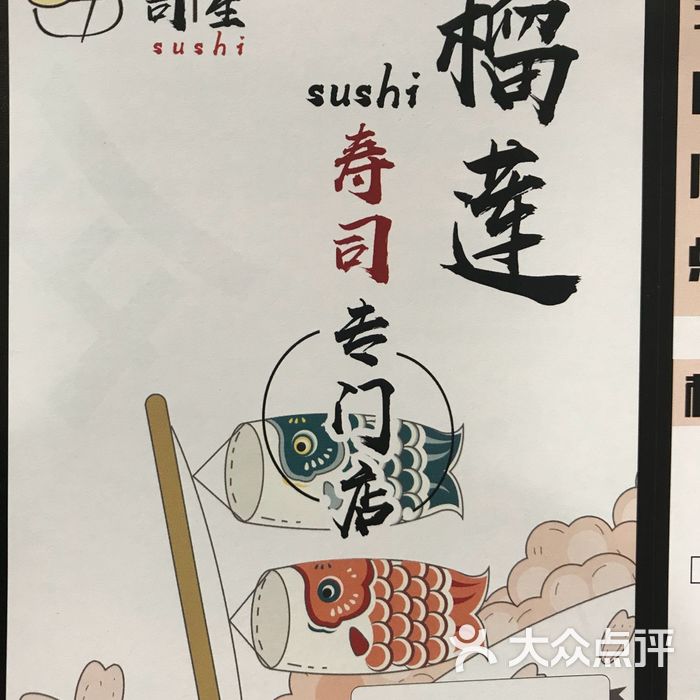 sushi
榴莲
sushi
寿司专门店
大众点评